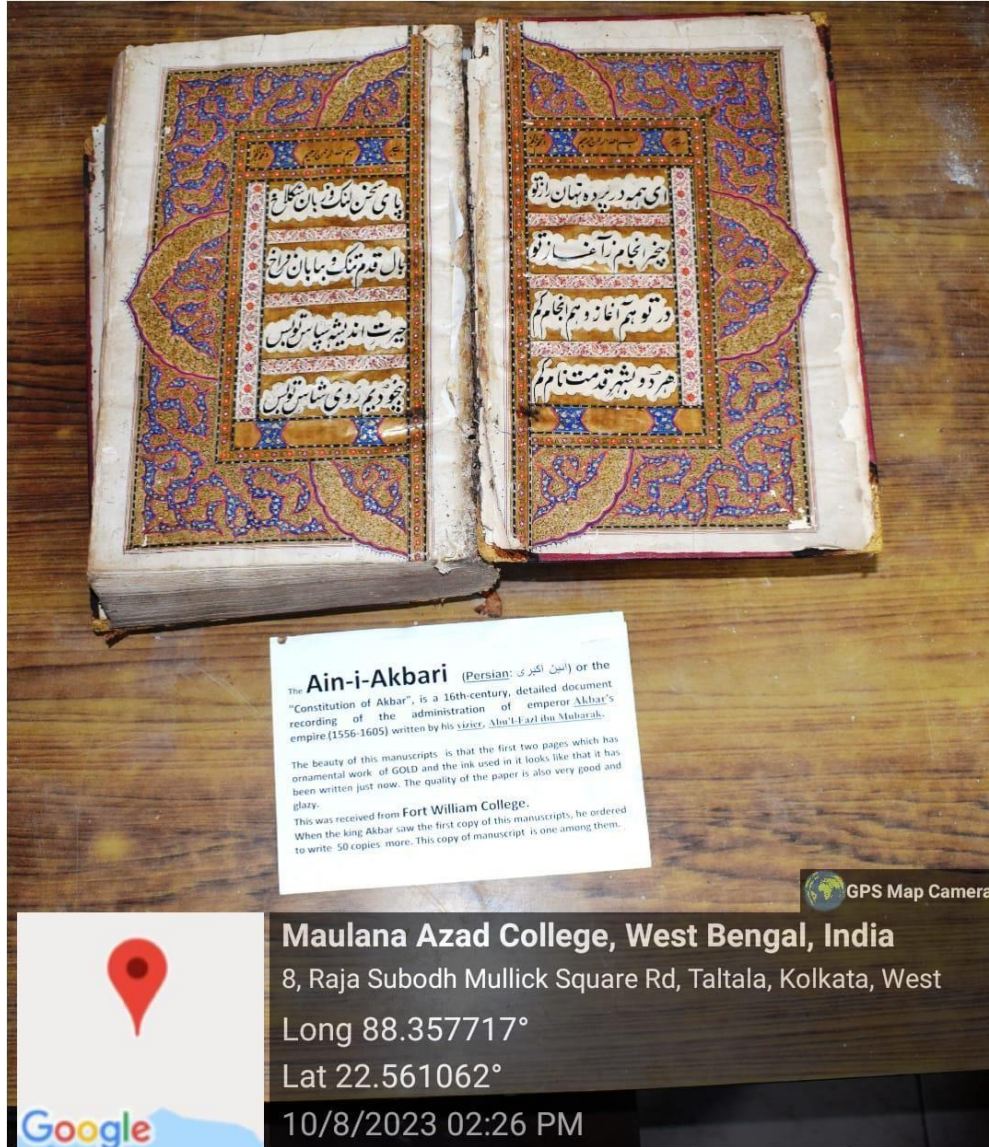 ای همه در پرده نهان راز تو
بیخبر انجام ز آغاز تو
در تو هم آغاز و هم انجام گم
هر دو بشهر قدمت نام گم
پای سخن لنگ و زبان سنگلاخ
بال قدم تنگ و بیابان فراخ
حیرت اندیشه سپاس تو بس
بیخودیم روی شناس تو بس
The Ain-i-Akbari (Persian: آئین اکبری) or the
"Constitution of Akbar", is a 16th-century, detailed document
recording of the administration of emperor Akbar's
empire (1556-1605) written by his vizier, Abu'l-Fazl ibn Mubarak.
The beauty of this manuscripts is that the first two pages which has
ornamental work of GOLD and the ink used in it looks like that it has
been written just now. The quality of the paper is also very good and
glazy.
This was received from Fort William College.
When the king Akbar saw the first copy of this manuscripts, he ordered
to write 50 copies more. This copy of manuscript is one among them.
GPS Map Camera
Maulana Azad College, West Bengal, India
8, Raja Subodh Mullick Square Rd, Taltala, Kolkata, West
Long 88.357717°
Lat 22.561062°
10/8/2023 02:26 PM
Google